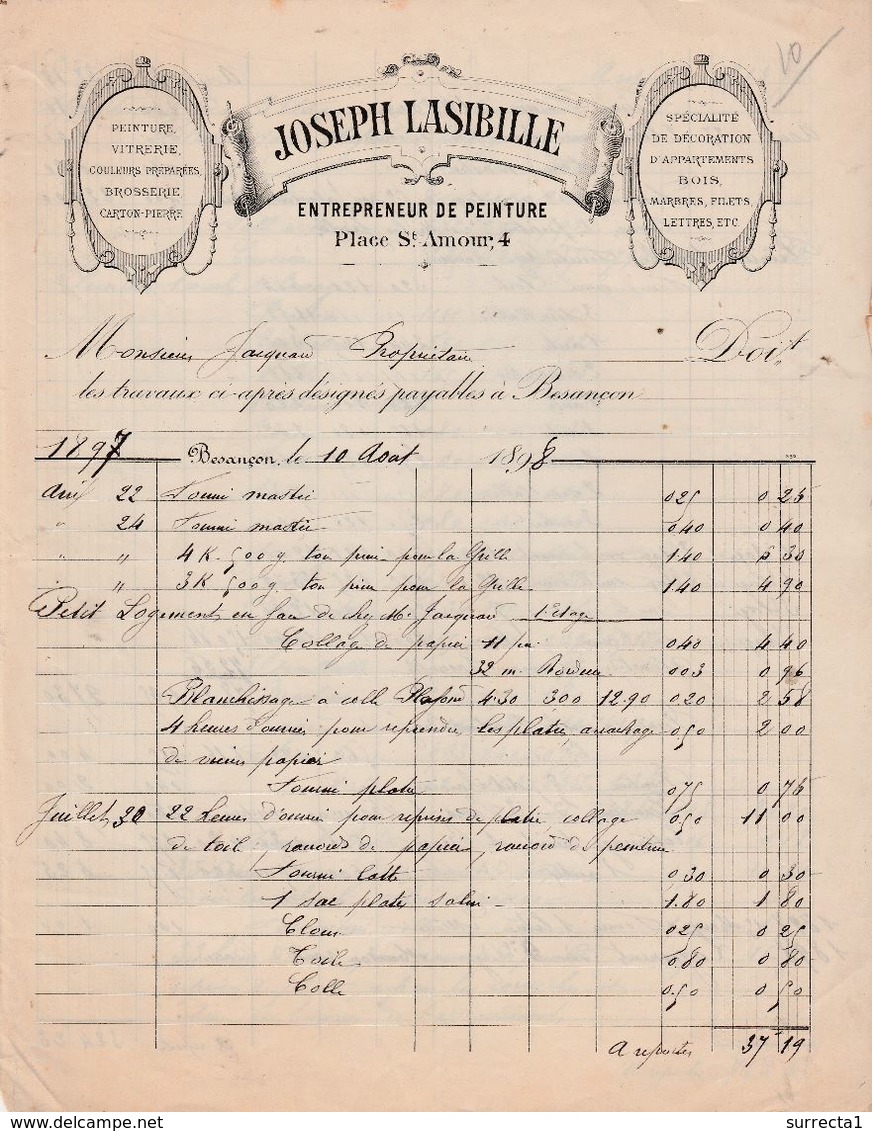 10
PEINTURE,
VITRERIE,
COULEURS PRÉPARÉES
BROSSERIE
CARTON-PIERRE
JOSEPH LASIBILLE
ENTREPRENEUR DE PEINTURE
Place St. Amour, 4
SPÉCIALITÉ
DE DÉCORATION
D'APPARTEMENTS
BOIS,
MARBRES, FILETS,
LETTRES, ETC.
Monsieur Jacquard Propriétaire Doit
les travaux ci-après désignés payables à Besançon
1897 Besançon, le 10 Aout 1898
Avril 22 Fourni mastic 025 0 25
" 24 Fourni mastic 040 0 40
" " 4 K. 500 g. ton pour la Grille 140 6 30
" " 3 K 500 g. ton pour la Grille 1.40 4 90
Petit Logement en face de chez Mr Jacquard 1er Etage
Collage de papier 11 040 4 40
32 m. Bordure 003 0 96
Blanchissage à colle Plafond 4.30 300 12.90 0,20 2 58
4 heures d'ouvrier pour reprendre les platre, arrachage 050 2 00
de vieux papier
Fourni platre 075 0 75
Juillet 30 22 heures d'ouvrier pour reprises de platre collage 0.50 11 00
de toile, raccords de papier, raccord de peinture
Fourni latte 0,30 0 30
1 sac platre 1.80 1 80
Clous 025 0 25
Toile 0.80 0 80
Colle 0.50 0 50
A reporter 37 19
surrecta1